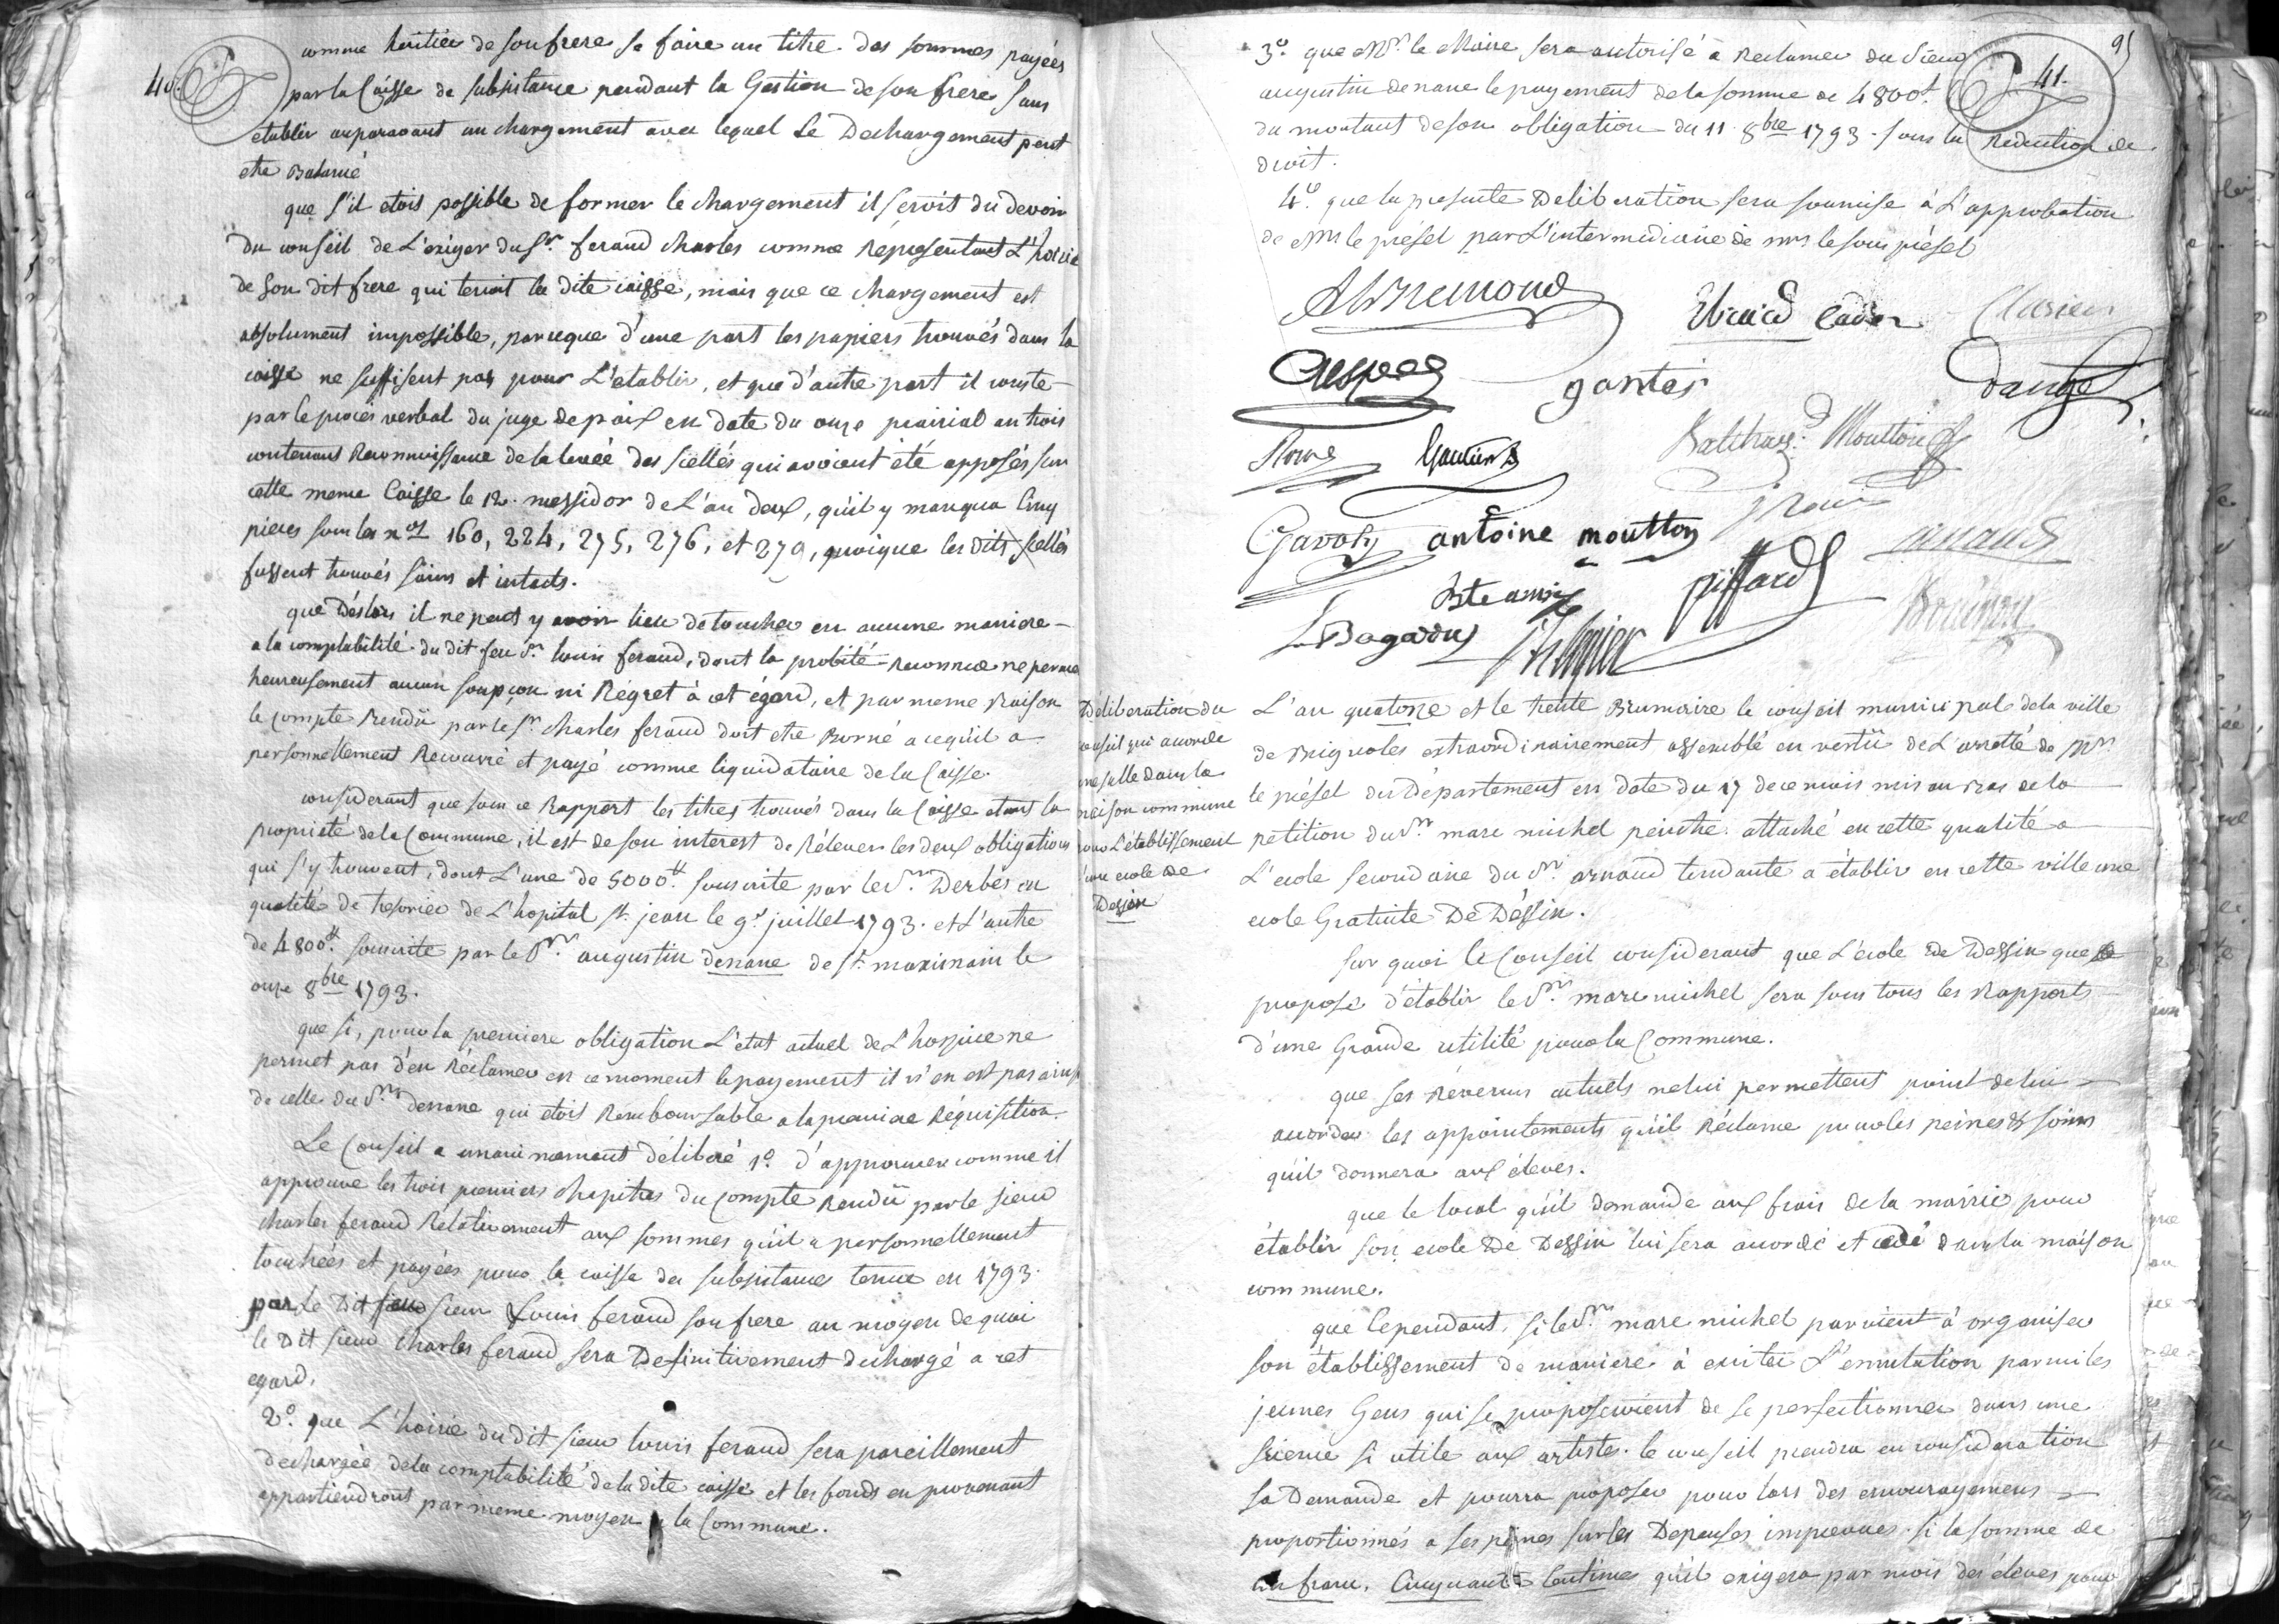 40.
comme heritier de son frere se faire un titre des sommes payées
par la Caisse de subsistance pendant la Gestion de son frere sans
etablir auparavant un chargement avec lequel le Dechargement peut
etre Balancé
que s'il etoit possible de former le chargement il seroit du devoir
du conseil de L'exiger du Sr. feraud charles comme Répresentant L'hoirie
de son dit frere qui tenoit la dite caisse, mais que ce chargement est
absolument impossible, parceque d'une part les papiers trouvés dans la
caisse ne suffisent pas pour L'etablir, et que d'autre part il conste
par le procés verbal du juge de paix en date du onze prairial an trois
contenant Reconnoissance de la levée des scellés qui avoient été apposés sur
cette meme Caisse le 12. messidor de L'an deux, qu'il y manqua Cinq
pieces sous les nos 160, 224, 275, 276, et 279, quoique les dits scellés
fussent trouvés sains et intacts.
que Déslors il ne peut y avoir lieu de toucher en aucune maniere
a la comptabilité du dit feu Sr. louis feraud, dont la probité reconnue ne permet
heureusement aucun soupçon ni Régret à cet égard, et par meme Raison
le compte Rendü par le Sr charles feraud doit etre Borné a ce qu'il a
personnellement Recouvré et payé comme liquidataire de la Caisse.
considerant que sous ce Rapport les titres trouvés dans la Caisse etant la
proprieté de la Commune, il est de son interest de Rélever les deux obligations
qui s'y trouvent, dont L'une de 5000tt. souscrite par le Sr. Derbés en
qualité de tresorier de L'hopital St. jean le 9e juillet 1793. et L'autre
de 4800tt. souscrite par le Sr. augustin denane de St. maximain le
onze 8bre 1793.
que si, pour la premiere obligation L'état actuel de L'hospice ne
permet pas d'en Réclamer en ce moment le payement il n'en est pas ainsi
de celle du Sr. denane qui etoit Remboursable a la premiere Réquisition.
Le Conseil a unanimement délibéré 1o. d'approuver comme il
approuve les trois premiers chapitres du compte Rendü par le sieur
charles feraud Rélativement aux sommes qu'il a personnellement
touchées et payées pour la caisse des subsistances tenue en 1793.
par le Dit sieur Louis feraud son frere au moyen de quoi
le Dit sieur Charles feraud sera Definitivement dechargé a cet
egard.
2o. que L'hoirie du dit sieur louis feraud sera pareillement
dechargée de la comptabilité de la dite caisse et les fonds en provenant
appartiendront par meme moyen a la Commune.
91
41.
3o. que Mr. le Maire sera autorisé a Reclamer du Sieur
augustin denane le payement de la somme de 4800tt.
du montant de son obligation du 11 8bre 1793. sous la Reduction de
droit.
4o. que la presente Deliberation sera soumise à L'approbation
de Mr le préfet par L'intermediaire de mr le sous préfet
gantés
Gautier
Balthazr. Moutton
Gavoty antoine moutton
piffard
L. Bagarry
Déliberation du
conseil qui accorde
une salle dans la
maison commune
pour L'établissement
d'une ecole de
Dessin
L'an quatorze et le trente Brumaire le conseil municipal de la ville
de Brignoles extraordinairement assemblé en vertü de L'arretté de Mr.
le préfet du Département en date du 17 de ce mois mis au bas de la
petition du Sr. marc michel peintre attaché en cette qualité a
L'ecole secondaire du Sr. arnaud tendante a établir en cette ville une
ecole Gratuite De Déssin.
sur quoi le Conseil considerant que L'école de Dessin que
propose d'établir le Sr. marc michel sera sous tous les Rapports
d'une Grande utilité pour la Commune.
que ses Révenus actuels ne lui permettent point de lui
accorder les appointements qu'il Réclame pour les peines & soins
qu'il donnera aux éleves.
que le local qu'il demande aux frais de la mairie pour
établir son ecole De Dessin lui sera accordé et cedé dans la maison
commune.
que Cependant, si le Sr. marc michel parvient à organiser
son établissement de maniere à exciter L'emulation parmi les
jeunes Gens qui se proposeroient de se perfectionner dans une
science si utile aux artistes. le conseil prendra en consideration
sa Demande et pourra proposer pour lors des encouragemens
proportionnés a ses peines sur les Depenses imprevues. si la somme de
un franc, Cinquante Centimes qu'il exigera par mois des éléves pour